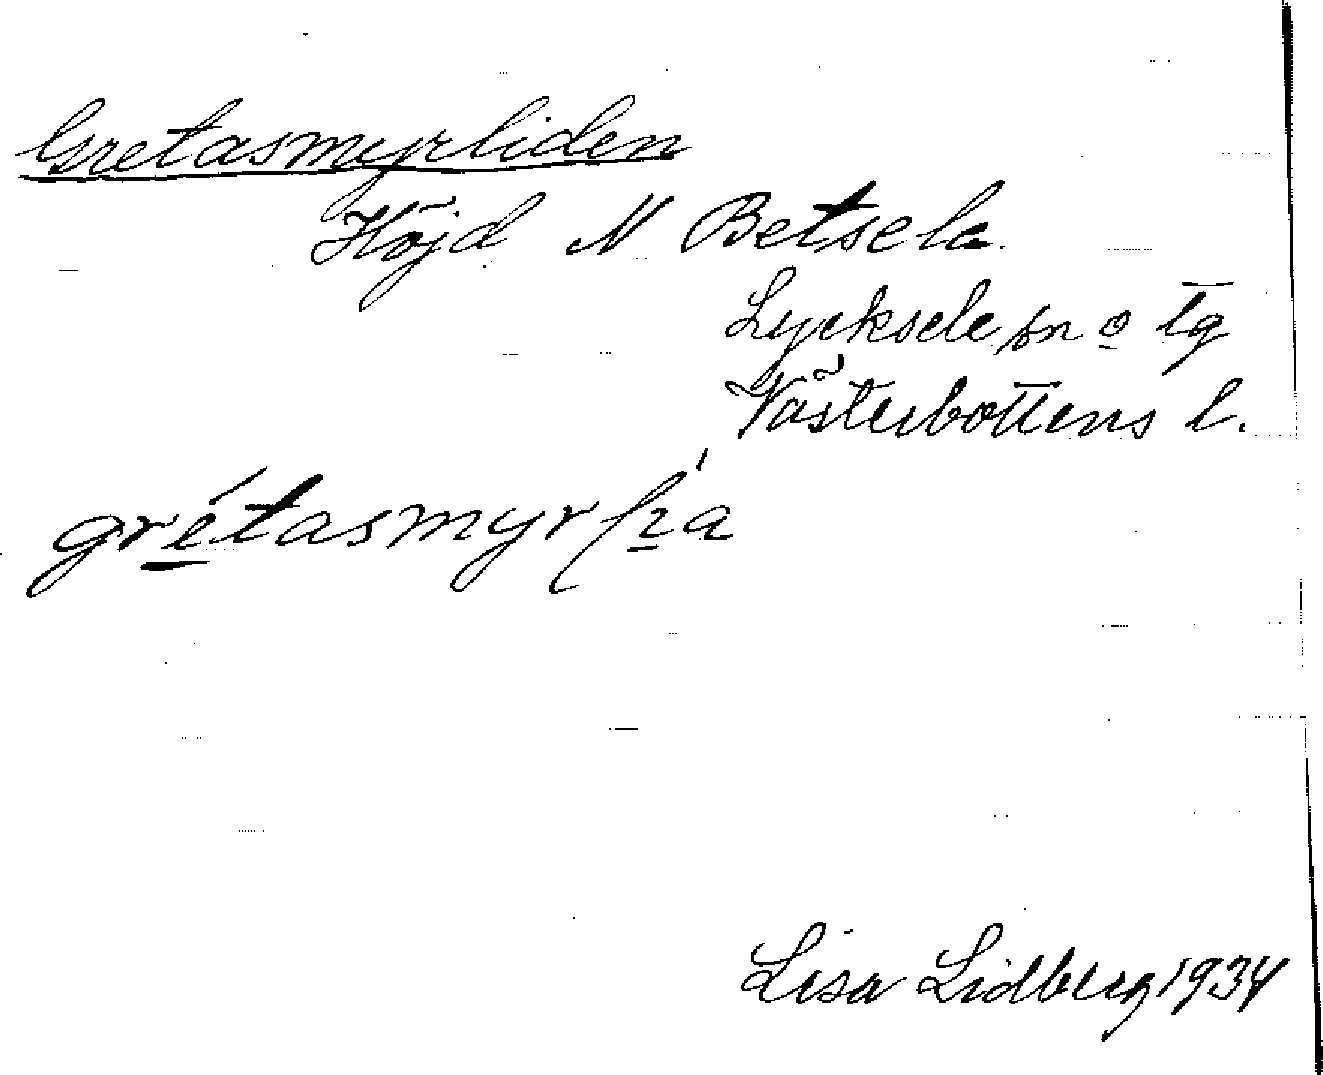 Gretasmyrliden
Höjd N Betsele.
Lycksele sn o tg
Västerbottens l.
Lisa Lidberg 1934